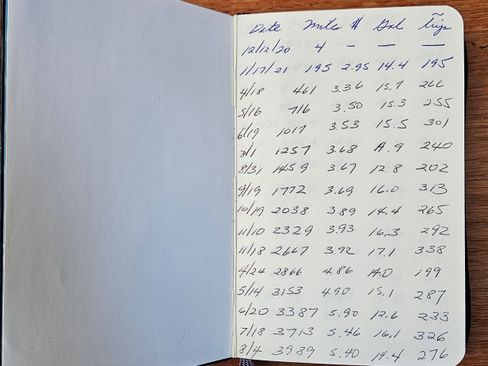 Date Miles $ Gal Trip
12/12/20 4 — — —
1/17/21 195 2.95 14.4 195
4/18 461 3.36 15.7 266
5/16 716 3.50 15.3 255
6/19 1017 3.53 15.5 301
1257 3.68 240
8/31 1459 3.67 12.8 202
9/19 1772 3.69 16.0 313
10/19 2038 3.89 14.4 265
11/10 2329 3.93 16.3 292
11/18 2667 3.92 17.1 338
4/24 2866 4.86 14.0 199
5/14 3153 4.90 15.1 287
6/20 3387 5.90 12.6 233
7/18 3713 5.46 16.1 326
8/4 3989 5.40 14.4 276